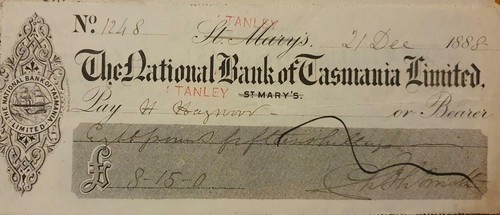 TANLEY
No. 1248 St. Mary's. 21 Dec 1888
The National Bank of Tasmania Limited.
TANLEY ST MARY'S.
Pay H or Bearer
Eight pounds fifteen shillings
£ 8-15-0
THE NATIONAL BANK OF TASMANIA LIMITED